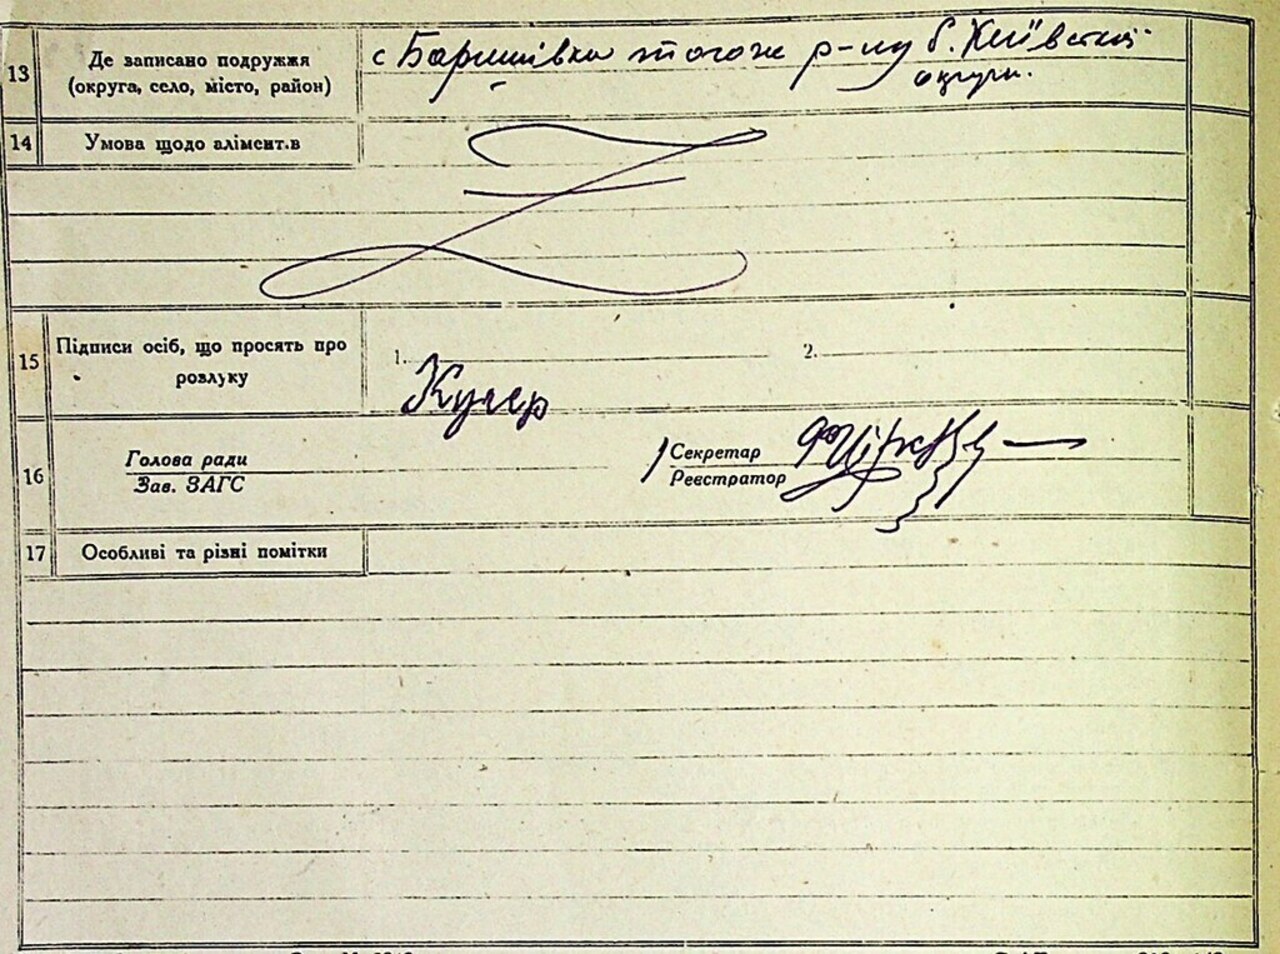 13 Де записано подружжя
(округа, село, місто, район)
с Баришівка тогож р-ну б. Київської
округи.
14 Умова щодо алімент.в
15 Підписи осіб, що просять про
розлуку
1. 2.
Кучер
16 Голова ради
Зав. ЗАГС
Секретар
Реєстратор
17 Особливі та різні помітки